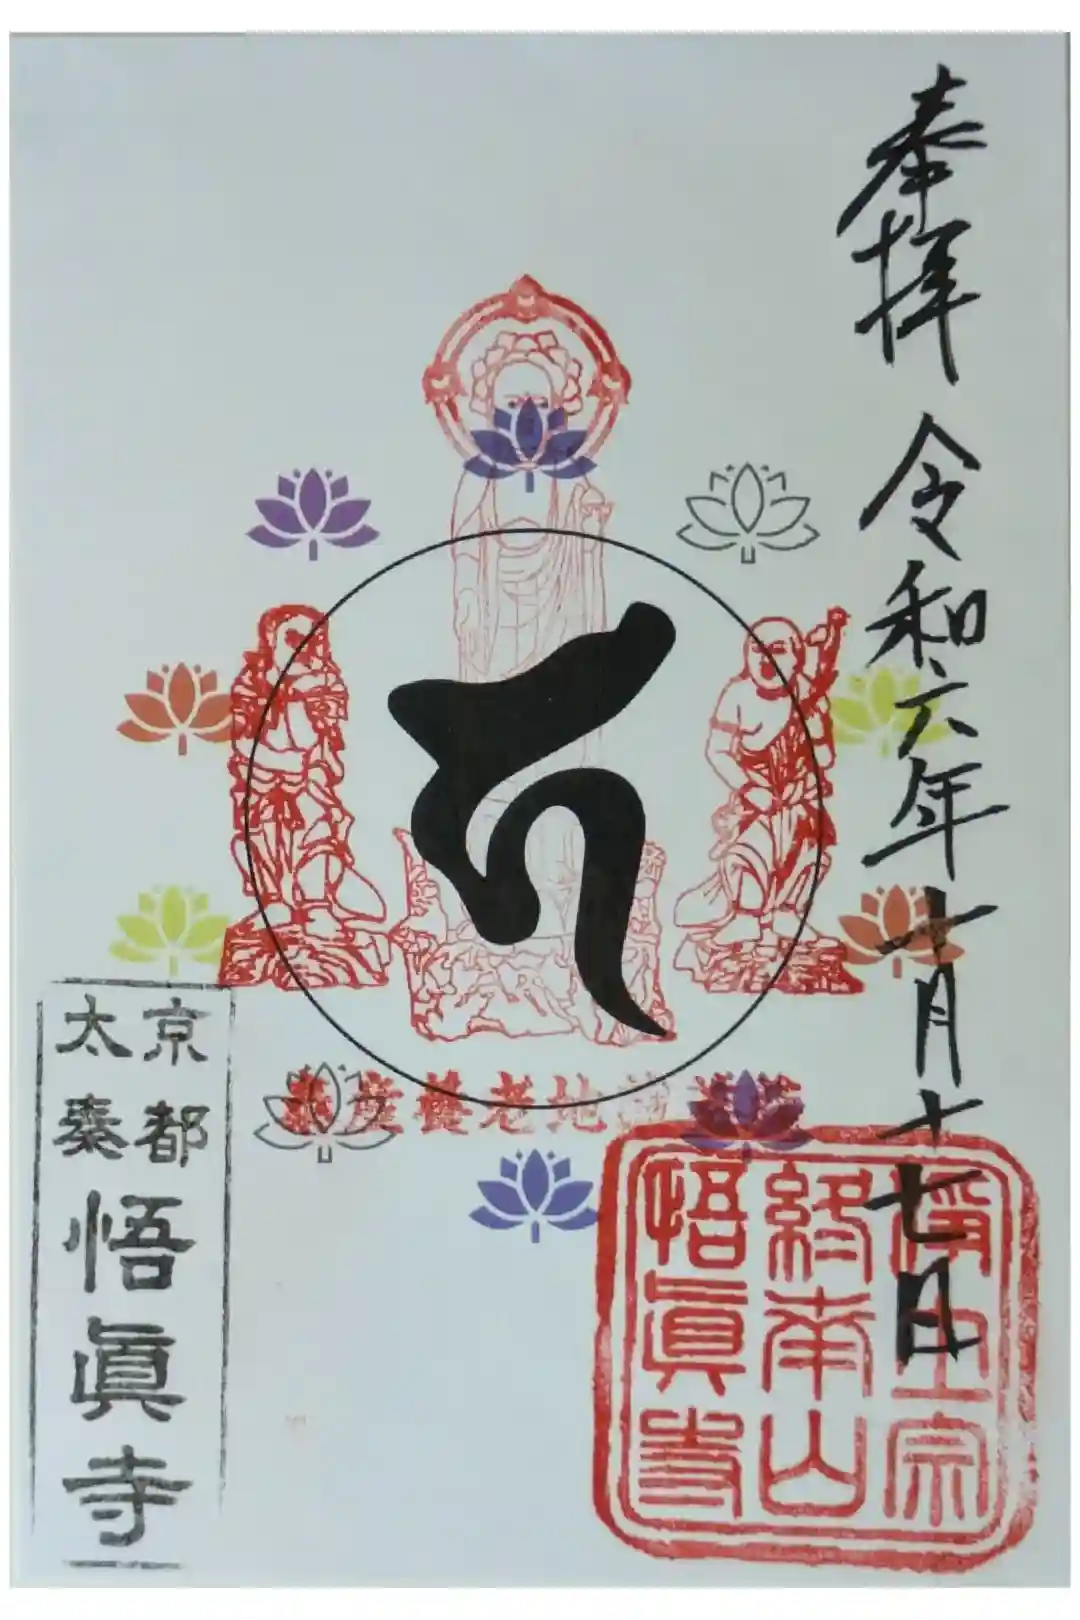 奉拝 令和六年十月十七日
産養老地蔵
浄土宗
終南山
悟眞寺
京都
太秦
悟眞寺